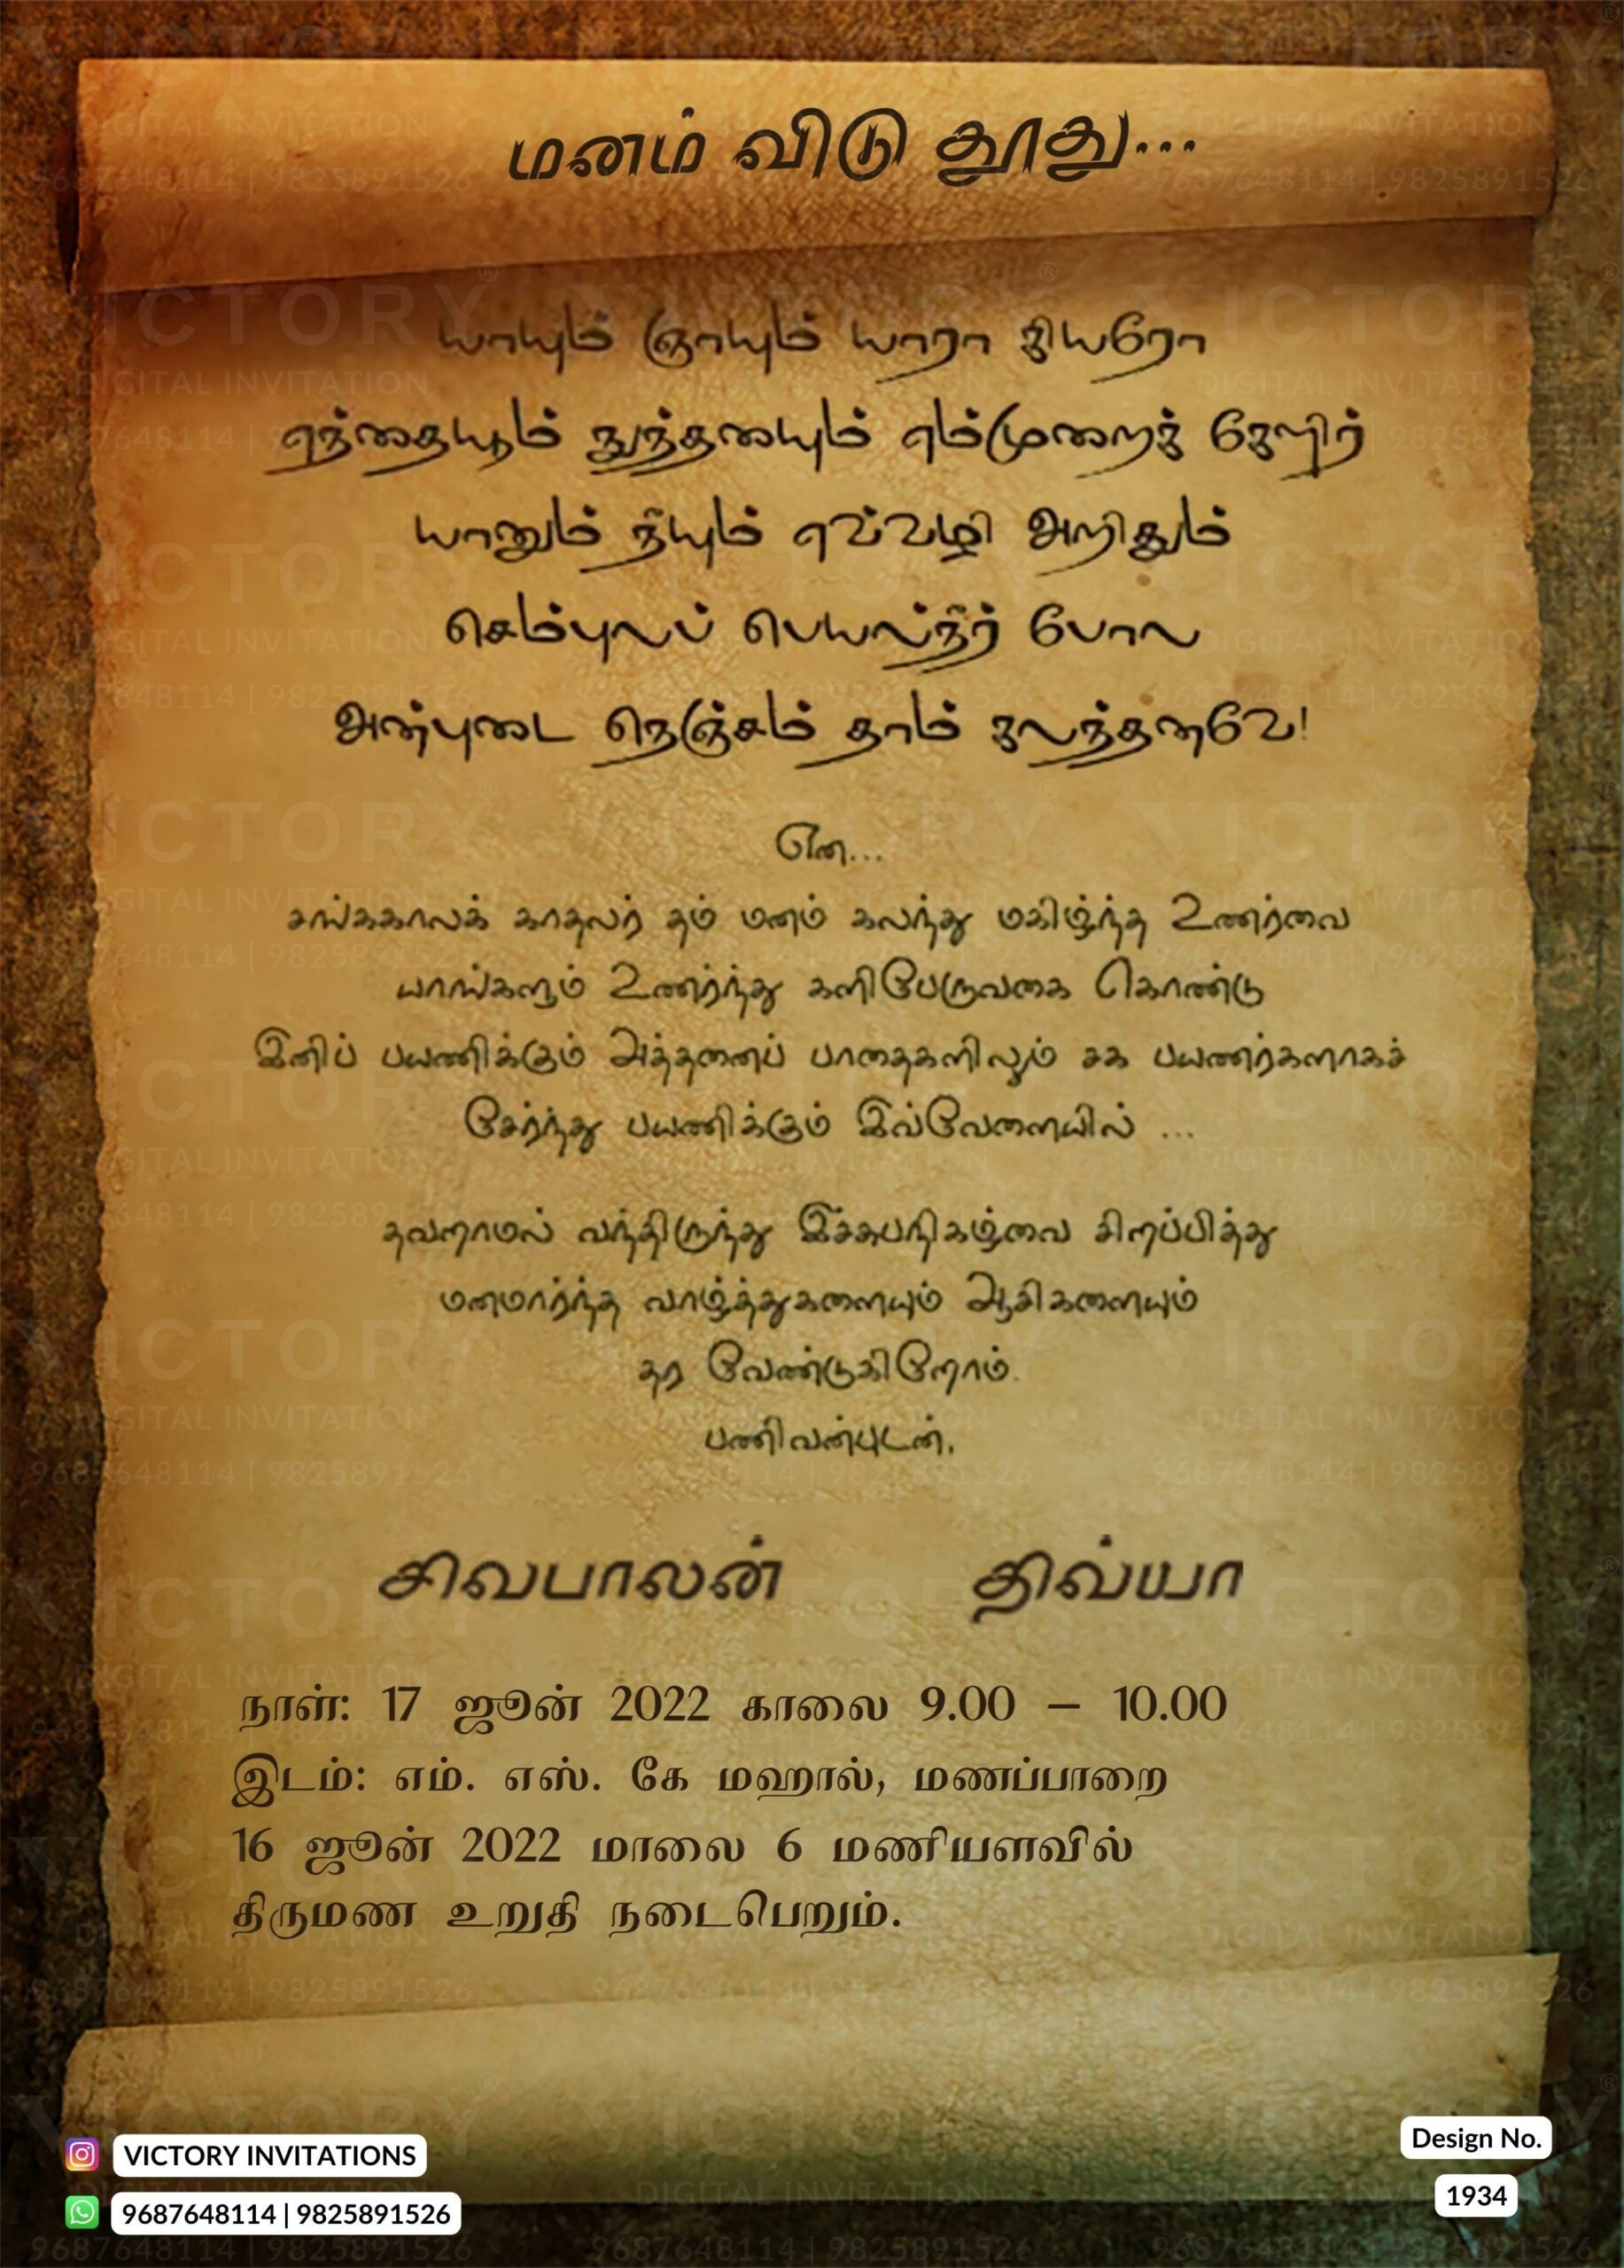 மனம் விடு தூது...
யாயும் ஞாயும் யாரா கியரோ
ஏந்தையும் நுந்தையும் எம்முறைக் கேளிர்
யானும் நீயும் எவ்வழி அறிதும்
செம்புலப் பெயல்நீர் போல
அன்புடை நெஞ்சம் தாம் கலந்தனவே!
என...
சங்ககாலக் காதலர் தம் மனம் கலந்து மகிழ்ந்த உணர்வை
யாங்களும் உணர்ந்து களிபேருவகை கொண்டு
இனிப் பயணிக்கும் அத்தனைப் பாதைகளிலும் சக பயணர்களாகச்
சேர்ந்து பயணிக்கும் இவ்வேளையில் ...
தவறாமல் வந்திருந்து இச்சுபநிகழ்வை சிறப்பித்து
மனமார்ந்த வாழ்த்துகளையும் ஆசிகளையும்
தர வேண்டுகிறோம்.
பணிவன்புடன்,
சிவபாலன் திவ்யா
நாள்: 17 ஜூன் 2022 காலை 9.00 – 10.00
இடம்: எம். எஸ். கே மஹால், மணப்பாறை
16 ஜூன் 2022 மாலை 6 மணியளவில்
திருமண உறுதி நடைபெறும்.
VICTORY INVITATIONS
9687648114 | 9825891526
Design No.
1934